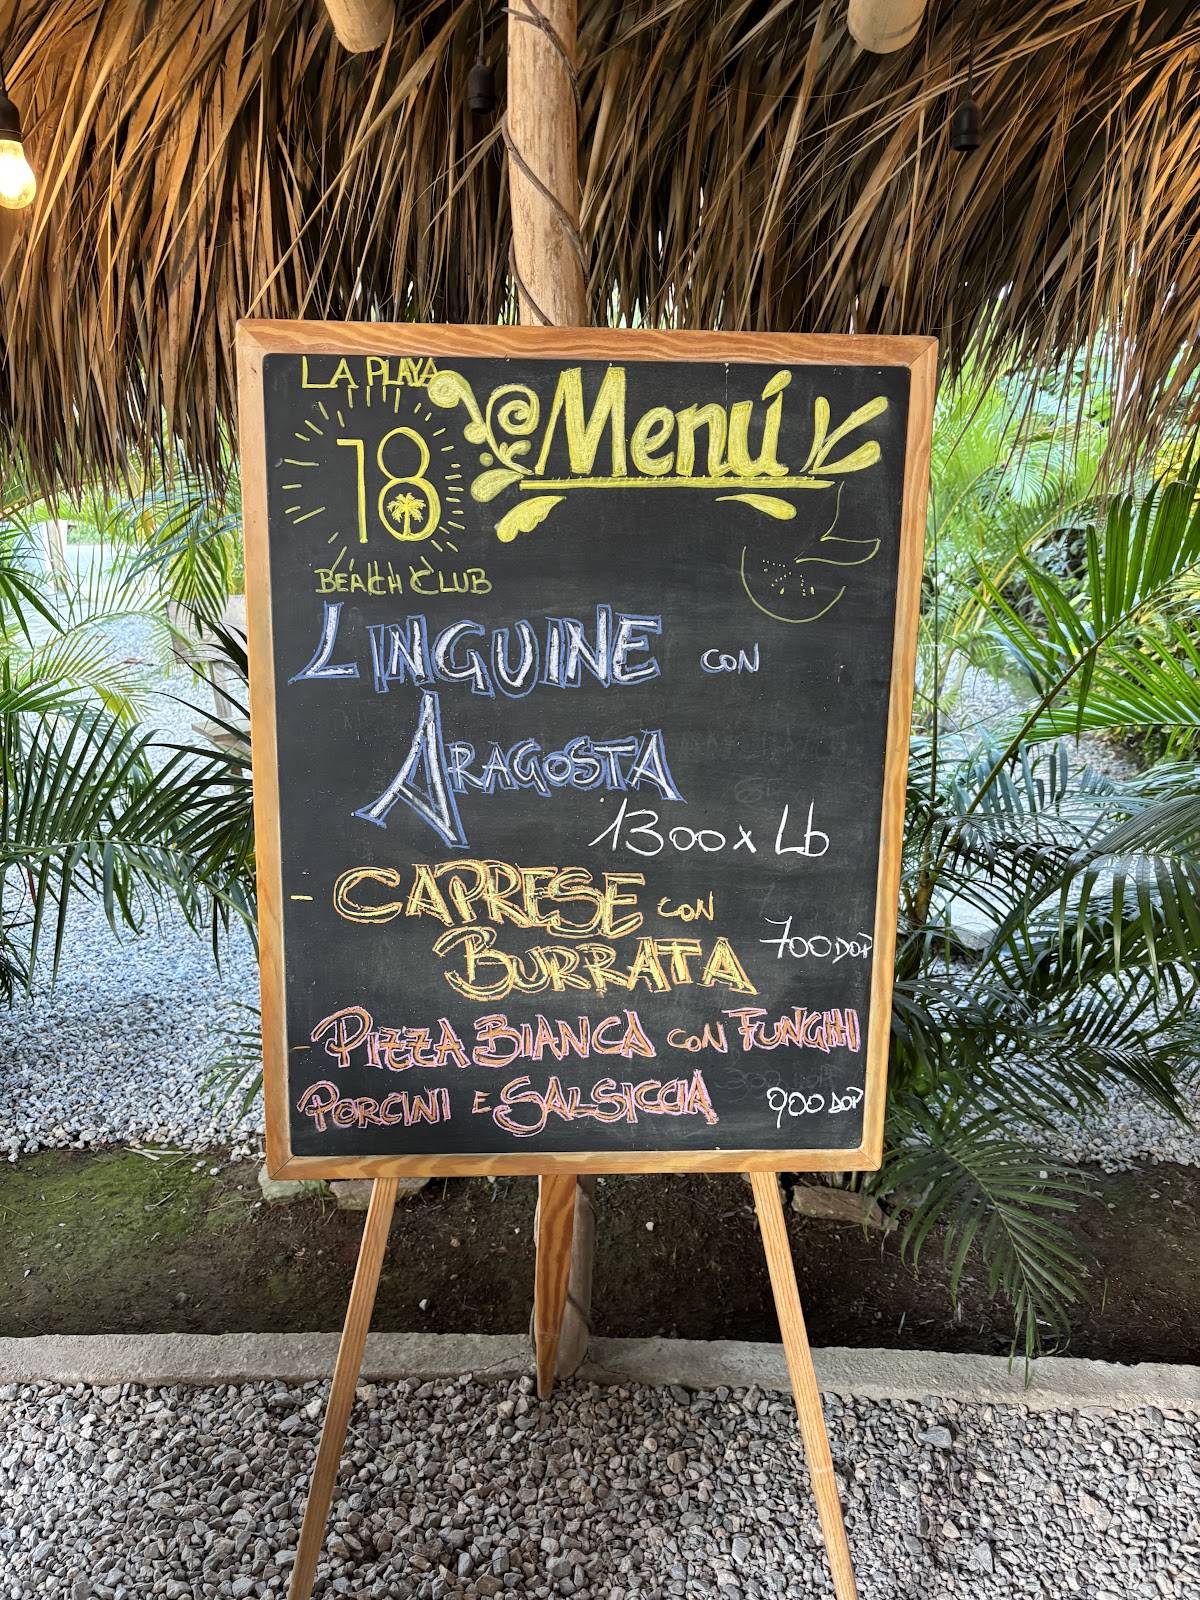 LA PLAYA
18
BEACH CLUB
Menú
LINGUINE CON
ARAGOSTA
1300 x Lb
- CAPRESE CON
BURRATA 700 DOP
- PIZZA BIANCA CON FUNGHI
PORCINI E SALSICCIA 900 DOP